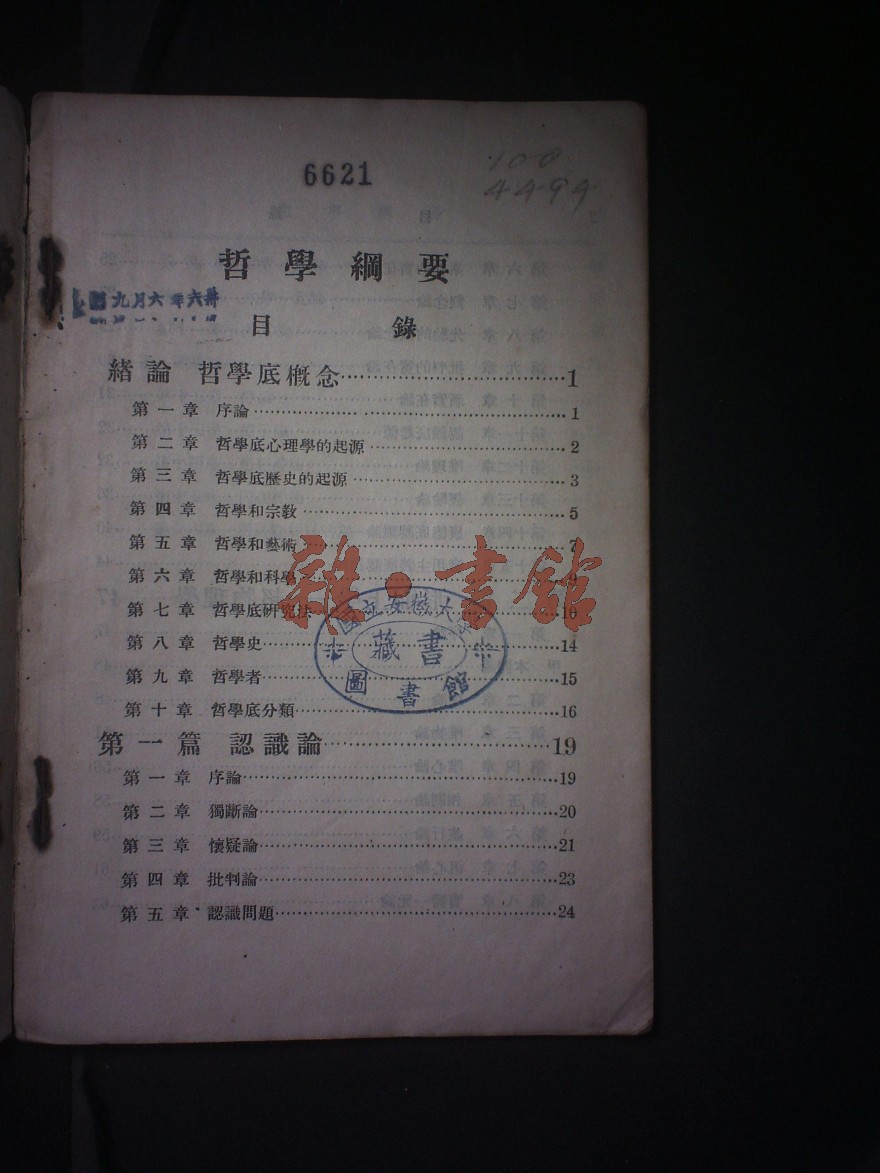 6621
100
4494
哲學綱要
九月六年六卅
目錄
緒論 哲學底概念……1
第一章 序論……1
第二章 哲學底心理學的起源……2
第三章 哲學底歷史的起源……3
第四章 哲學和宗教……5
第五章 哲學和藝術……7
第六章 哲學和科學……9
雜·書館
第七章 哲學底研究法……10
國立安徽大學
藏書
圖書館
第八章 哲學史……14
第九章 哲學者……15
第十章 哲學底分類……16
第一篇 認識論……19
第一章 序論……19
第二章 獨斷論……20
第三章 懷疑論……21
第四章 批判論……23
第五章 認識問題……24